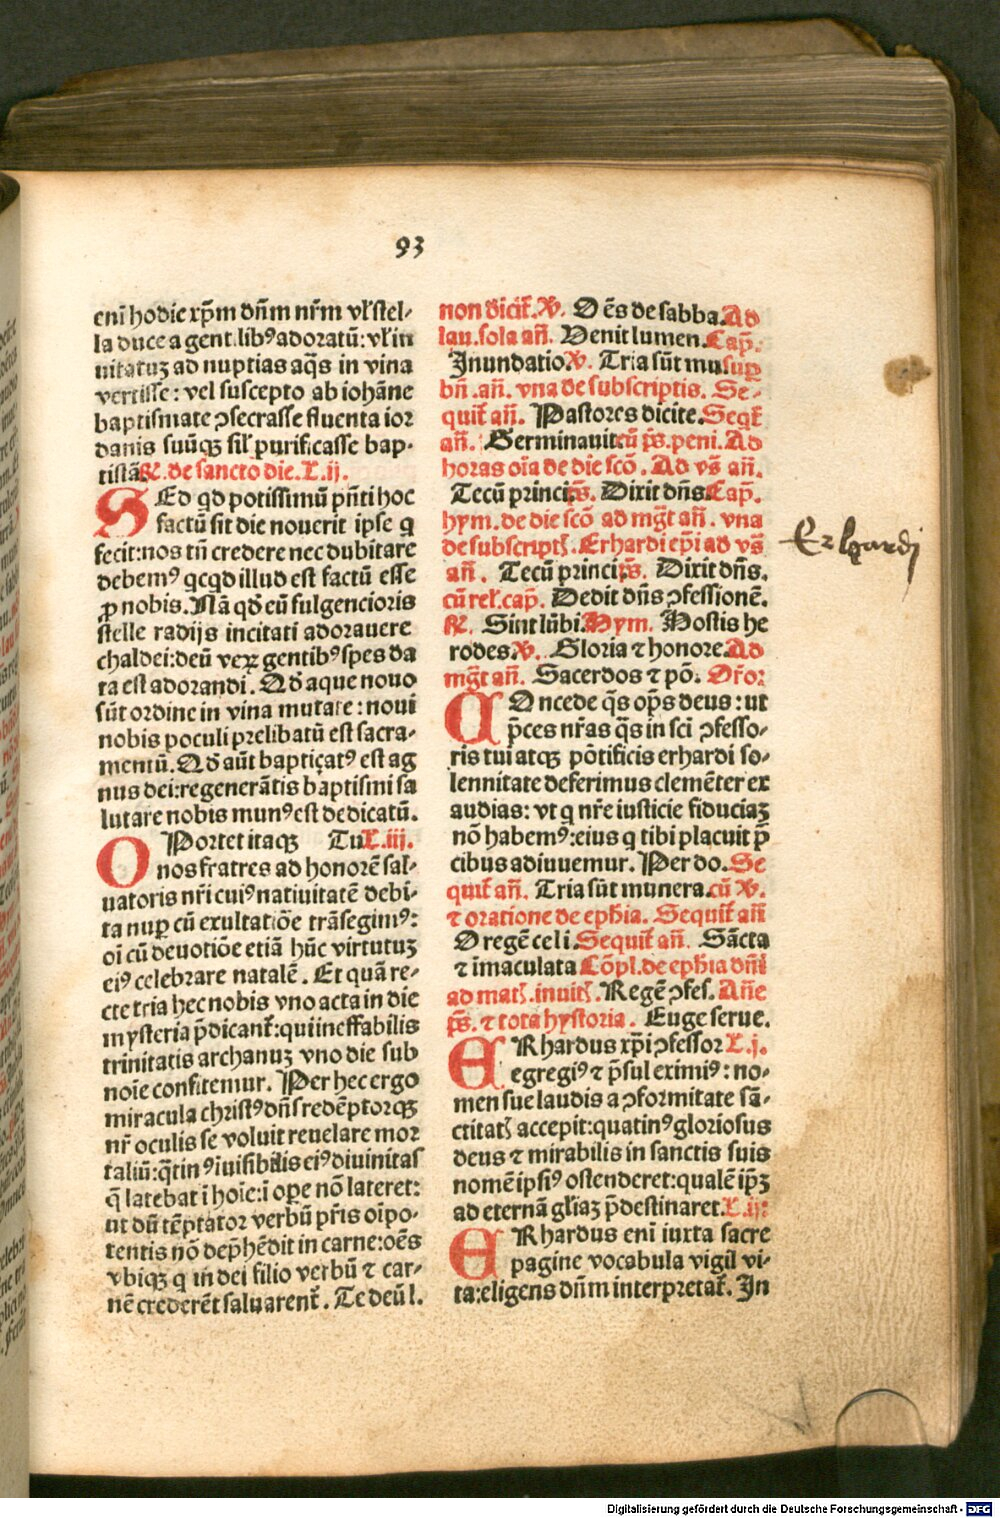 93
enī hodie xp̄m dn̄m nr̄m vl̓ stel-
la duce a gentibꝰ adoratū: vl̓ in
uitatuꝫ ad nuptias aq̄s in vina
vertisse: vel suscepto ab iohāne
baptismate ↄsecrasse fluenta ior
danis suūqꝫ sil̓ purificasse bap-
tistā R̸. de sancto die. L. ij.
SEd qd̓ potissimū pn̄ti hoc
factū sit die nouerit ipse q
fecit: nos tn̄ credere nec dubitare
debemꝰ qcqd illud est factū esse
ꝓ nobis. Nā qd̓ eū fulgencioris
stelle radijs incitati adorauere
chaldei: deū veꝝ gentibꝰ spes da
ta est adorandi. Qd̓ aque nouo
sūt ordine in vina mutate: noui
nobis poculi prelibatū est sacra-
mentū. Qd̓ aūt baptiçatꝰ est ag
nus dei: regenerātis baptismi sa
lutare nobis munꝰ est dedicatū.
OPortet itaqꝫ Tu L. iij.
nos fratres ad honorē sal-
uatoris nr̄i cuiꝰ natiuitatē debi-
ta nuꝑ cū exultatiōe trāsegimꝰ:
oī cū deuotiōe etiā hūc virtutuꝫ
eiꝰ celebrare natalē. Et quā re-
cte tria hec nobis vno acta in die
mysteria p̄dicant̄: qui ineffabilis
trinitatis archanuꝫ vno die sub
noīe confitemur. Per hec ergo
miracula christꝰ dn̄s redēptorqꝫ
nr̄ oculis se voluit reuelare mor
taliū: q̄tinꝰ īuisibilis eiꝰ diuinitas
q̄ latebat ī hoīe: ī ope nō lateret:
ut dū tēptator verbū pr̄is oīpo-
tentis nō dep̄hēdit in carne: oēs
vbiqꝫ q in dei filio verbū ⁊ car-
nē crederēt saluarent̄. Te deū l.
non dicit̄. V̸. Oēs de sabba. Ad
lau. sola an̄. Venit lumen. Cap̄.
Inundatio V̸. Tria sūt mu suꝑ
bn̄. an̄. vna de subscriptis. Se-
quit̄ an̄. Pastores dicite. Seqt̄
an̄. Germinauit cū p̄s. peni. Ad
horas oīa de die scō. Ad vs̄ an̄.
Tecū princi p̄s. Dixit dn̄s Cap̄.
hym. de die scō ad mgt̄ an̄. vna
de subscriptꝭ. Erhardi ep̄i ad vs̄
an̄. Tecū princi p̄s. Dixit dn̄s.
cū rel̓. cap̄. Dedit dn̄s ↄfessionē.
R̸. Sint lūbi. Hym. Hostis he
rodes. V̸. Gloria ⁊ honore. Ad
mgt̄ an̄. Sacerdos ⁊ pō. Or̄o:
COncede q̄s op̄s deus: ut
p̄ces nr̄as q̄s in sci ↄfesso-
ris tui atqꝫ pōtificis erhardi so-
lennitate deferimus clemēter ex
audias: vt q nr̄e iusticie fiduciaꝫ
nō habemꝰ: eius q tibi placuit p̄
cibus adiuuemur. Per do. Se
quit̄ an̄. Tria sūt munera. cū V̸.
⁊ oratione de eph̄ia. Sequit̄ an̄
O regē celi. Sequit̄ an̄. Sācta
⁊ īmaculata Cōpl. de eph̄ia dn̄i
ad matꝭ. inuitꝭ. Regē ↄfes. An̄e
p̄s. ⁊ tota hystoria. Euge serue.
ERhardus xp̄i ↄfessor L. j.
egregiꝰ ⁊ p̄sul eximiꝰ: no-
men sue laudis a ↄformitate sā-
ctitatꝭ accepit: quatinꝰ gloriosus
deus ⁊ mirabilis in sanctis suis
nomē ipsiꝰ ostenderet: qualē ip̄ꝫ
ad eternā gl̓iaꝫ p̄destinaret. L. ij:
ERhardus enī iuxta sacre
pagine vocabula vigil vi-
ta: eligens dn̄m interpretat̄. In
Erhardj
Digitalisierung gefördert durch die Deutsche Forschungsgemeinschaft - DFG